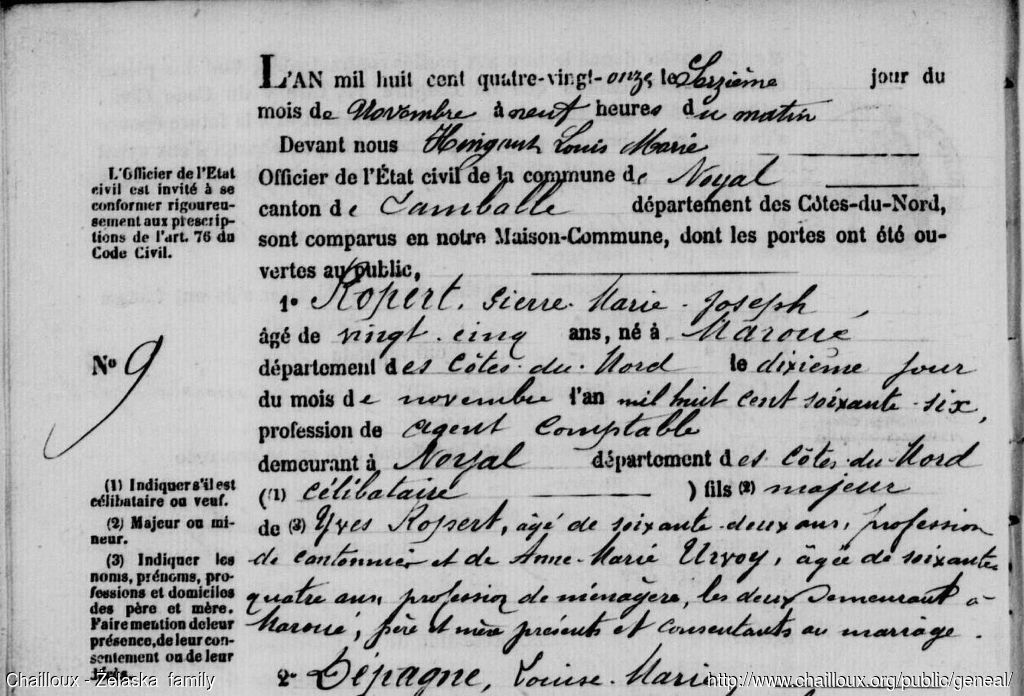 L'AN mil huit cent quatre-vingt-onze le Seizième jour du
mois de Novembre à neuf heures du matin
Devant nous Louis Marie
Officier de l'État civil de la commune de Noyal
canton de Lamballe département des Côtes-du-Nord,
sont comparus en notre Maison-Commune, dont les portes ont été ou-
vertes au public,
1º Ropert, Pierre Marie Joseph,
âgé de vingt-cinq ans, né à Maroué
département des Côtes-du-Nord le dixième jour
du mois de novembre l'an mil huit cent soixante-six,
profession de agent comptable
demeurant à Noyal département des Côtes-du-Nord
(1) célibataire ) fils (2) majeur
de (3) Yves Ropert, âgé de soixante-deux ans, profession
de cantonnier et de Anne-Marie Urvoy, âgée de soixante
quatre ans, profession de ménagère, les deux demeurant à
Maroué, père et mère présents et consentants au mariage.
2º Dépagne, Louise Marie
L'Officier de l'Etat
civil est invité à se
conformer rigoureu-
sement aux prescrip-
tions de l'art. 76 du
Code Civil.
Nº 9
(1) Indiquer s'il est
célibataire ou veuf.
(2) Majeur ou mi-
neur.
(3) Indiquer les
noms, prénoms, pro-
fessions et domiciles
des père et mère.
Faire mention de leur
présence, de leur con-
sentement ou de leur
Chailloux - Zelaska family
http://www.chailloux.org/public/geneal/